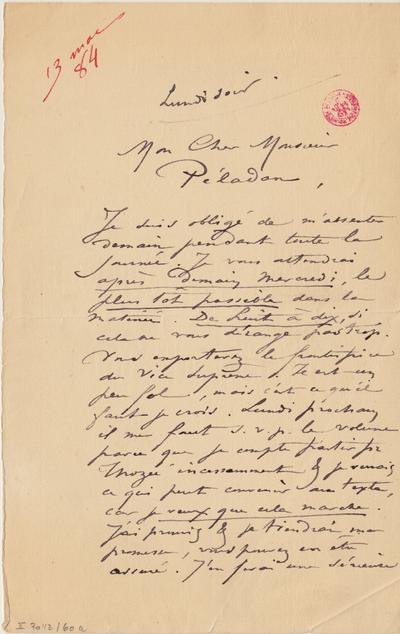 13 mai
84
Lundi soir.
Mon Cher Monsieur
Péladan,
Je suis obligé de m'absenter
demain pendant toute la
journée. Je vous attendrai
après Demain Mercredi, le
plus tôt possible dans la
matinée. De huit à dix, si
cela ne vous dérange pas trop.
Vous emporterez le frontispice
du Vice Suprême. Il est un
peu fol, mais c'est ce qu'il
faut je crois. Lundi prochain
il me faut s.v.p. le volume
parce que je compte partir pr
incessamment & je
ce qui peut convenir au texte,
car je veux que cela marche.
J'ai promis & je tiendrai ma
promesse, vous pouvez en être
assuré. J'en ferai une sérieuse
II 7042/60a